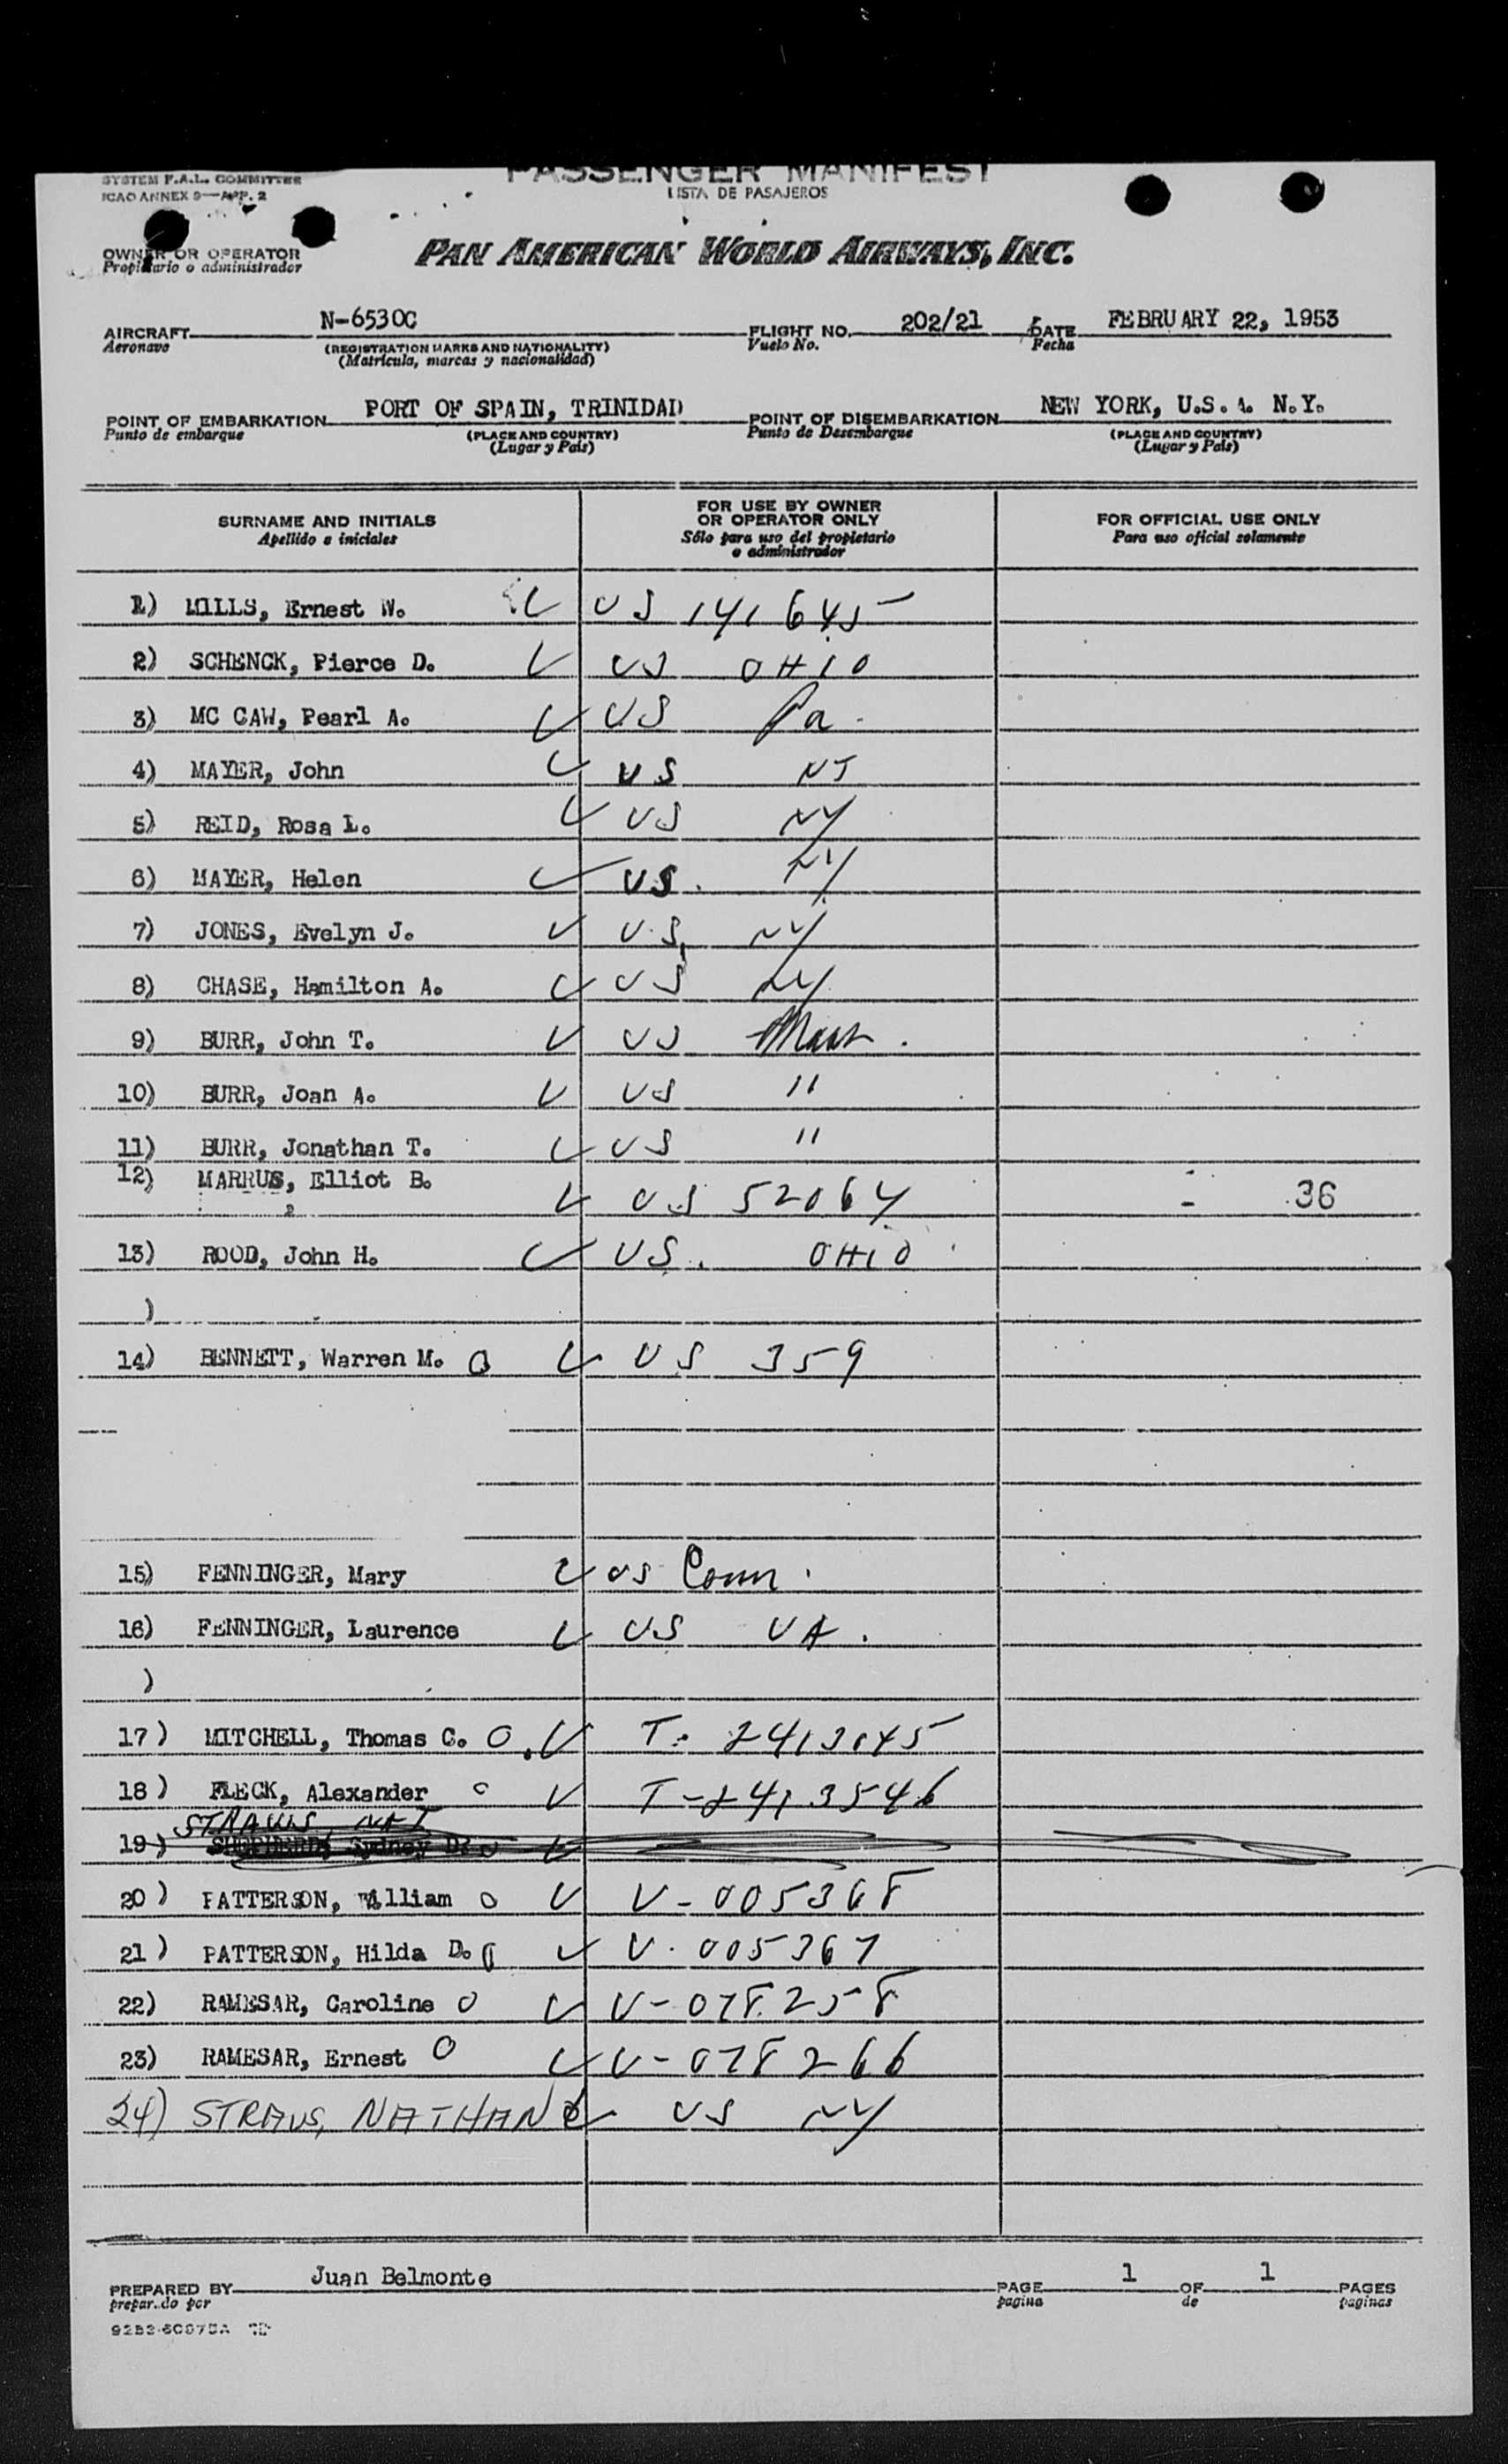 PASSENGER MANIFEST
LISTA DE PASAJEROS
SYSTEM F.A.L. COMMITTEE
ICAO ANNEX 9—APP. 2
OWNER OR OPERATOR
Propietario o administrador
PAN AMERICAN WORLD AIRWAYS, INC.
AIRCRAFT N-6530C FLIGHT NO. 202/21 DATE FEBRUARY 22, 1953
Aeronave (REGISTRATION MARKS AND NATIONALITY) Vuelo No. Fecha
(Matrícula, marcas y nacionalidad)
POINT OF EMBARKATION PORT OF SPAIN, TRINIDAD POINT OF DISEMBARKATION NEW YORK, U.S.A. N.Y.
Punto de embarque (PLACE AND COUNTRY) Punto de Desembarque (PLACE AND COUNTRY)
(Lugar y País) (Lugar y País)
SURNAME AND INITIALS FOR USE BY OWNER OR OPERATOR ONLY FOR OFFICIAL USE ONLY
Apellido e iniciales Sólo para uso del propietario o administrador Para uso oficial solamente
1) MILLS, Ernest W. US 141645
2) SCHENCK, Pierce D. US OHIO
3) MC CAW, Pearl A. US Pa.
4) MAYER, John US NJ
5) REID, Rosa L. US NY
6) MAYER, Helen US. NY
7) JONES, Evelyn J. U.S. NY
8) CHASE, Hamilton A. US NY
9) BURR, John T. US Mass.
10) BURR, Joan A. US "
11) BURR, Jonathan T. US "
12) MARRUS, Elliot B. US 52064 36
13) ROOD, John H. US. OHIO
)
14) BENNETT, Warren M. O US 359
15) FENNINGER, Mary US Conn.
16) FENNINGER, Laurence US VA.
)
17) MITCHELL, Thomas C. O T. 2413045
18) FLECK, Alexander O T-2413546
STRAUS, NAT
19) Sydney D. O
20) PATTERSON, William O V-005368
21) PATTERSON, Hilda D. O V-005367
22) RAMESAR, Caroline O V-078258
23) RAMESAR, Ernest O V-078266
24) STRAUS, NATHAN US NY
PREPARED BY Juan Belmonte PAGE 1 OF 1 PAGES
preparado por pagina de paginas